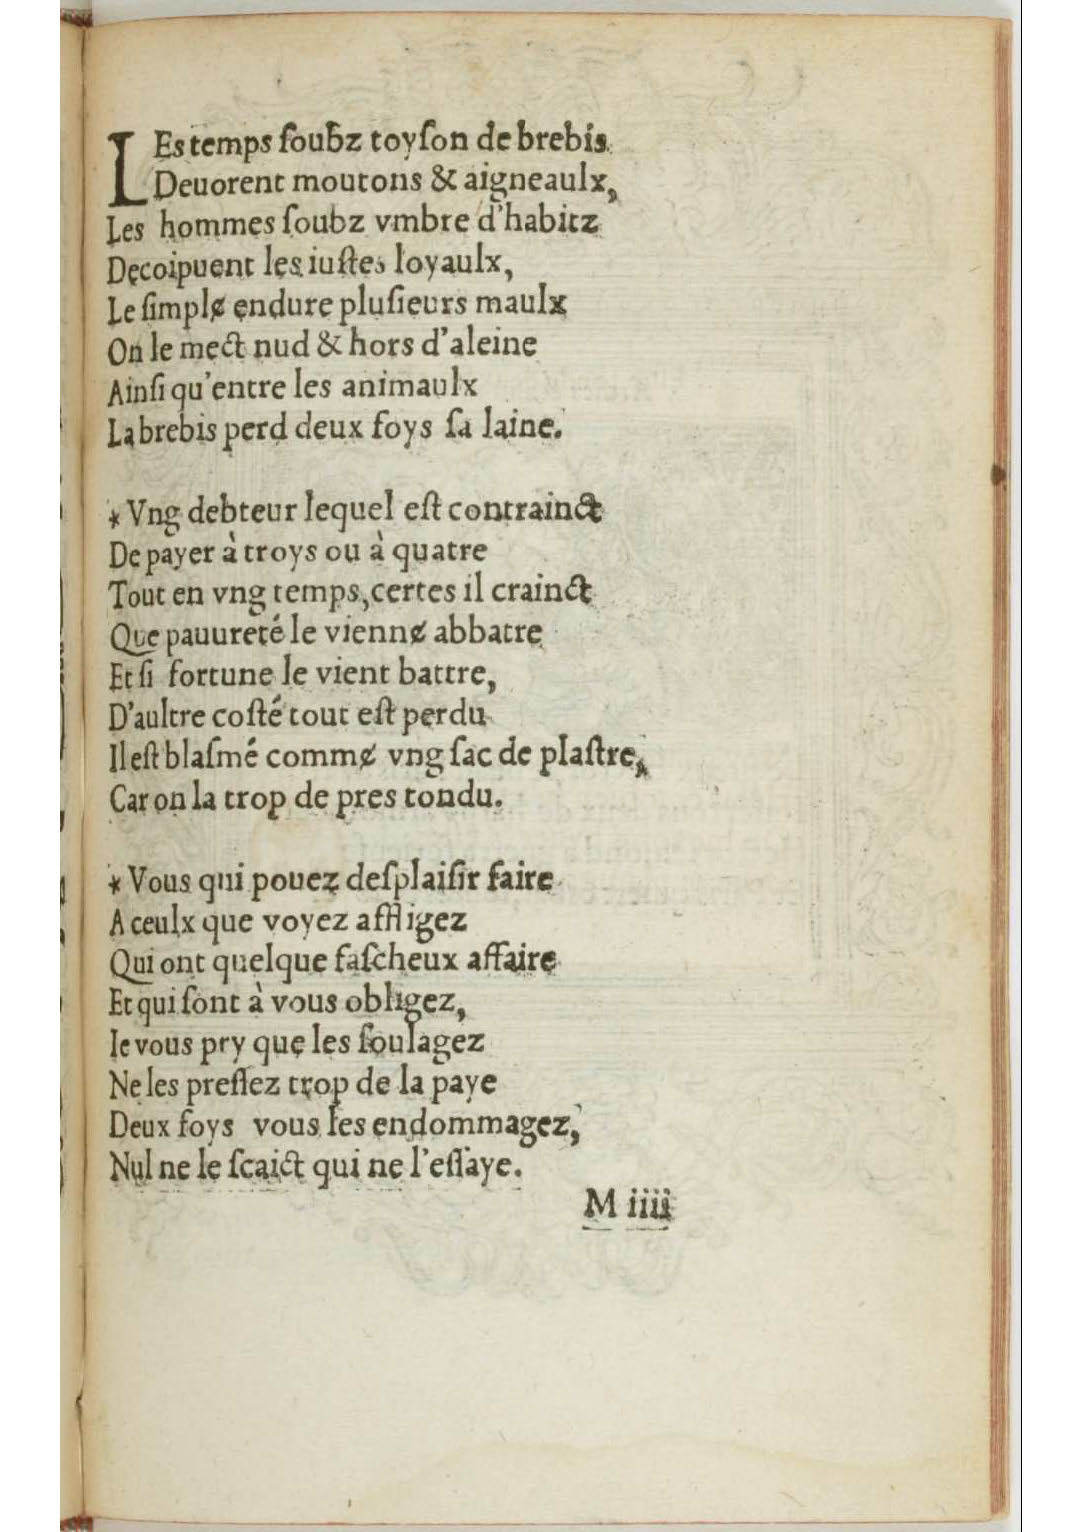 LEs temps ſoubz toyſon de brebis
Deuorent moutons & aigneaulx,
Les hommes ſoubz vmbre d'habitz
Decoipuent les iuſtes loyaulx,
Le ſimplɇ endure pluſieurs maulx
On le mect nud & hors d'aleine
Ainſi qu'entre les animaulx
La brebis perd deux foys ſa laine.

* Vng debteur lequel eſt contrainct
De payer à troys ou à quatre
Tout en vng temps, certes il crainct
Que pauureté le viennɇ abbatre
Et ſi fortune le vient battre,
D'aultre coſté tout eſt perdu
Il eſt blaſmé commɇ vng ſac de plaſtre,
Car on la trop de pres tondu.

* Vous qui pouez deſplaiſir faire
A ceulx que voyez affligez
Qui ont quelque faſcheux affaire
Et qui ſont à vous obligez,
Ie vous pry que les ſoulagez
Ne les preſſez trop de la paye
Deux foys vous les endommagez,
Nul ne le ſcaict qui ne l'eſſaye.
M iiii